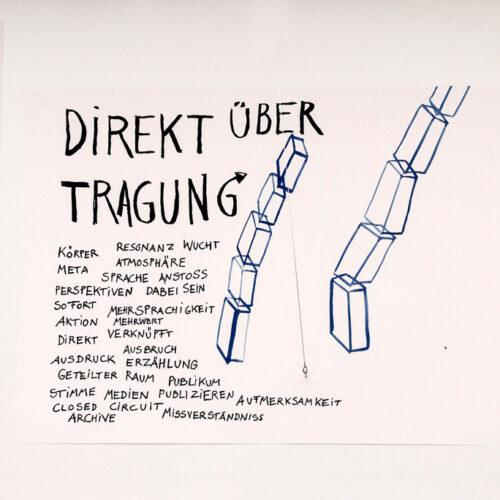 DIREKT ÜBER
TRAGUNG
KÖRPER RESONANZ WUCHT
META ATMOSPHÄRE
SPRACHE ANSTOSS
PERSPEKTIVEN DABEI SEIN
SOFORT MEHRSPRACHIGKEIT
AKTION MEHRWERT
DIREKT VERKNÜPFT
AUSBRUCH
AUSDRUCK ERZÄHLUNG
GETEILTER RAUM PUBLIKUM
STIMME MEDIEN PUBLIZIEREN AUFMERKSAMKEIT
CLOSED CIRCUIT MISSVERSTÄNDNISS
ARCHIVE